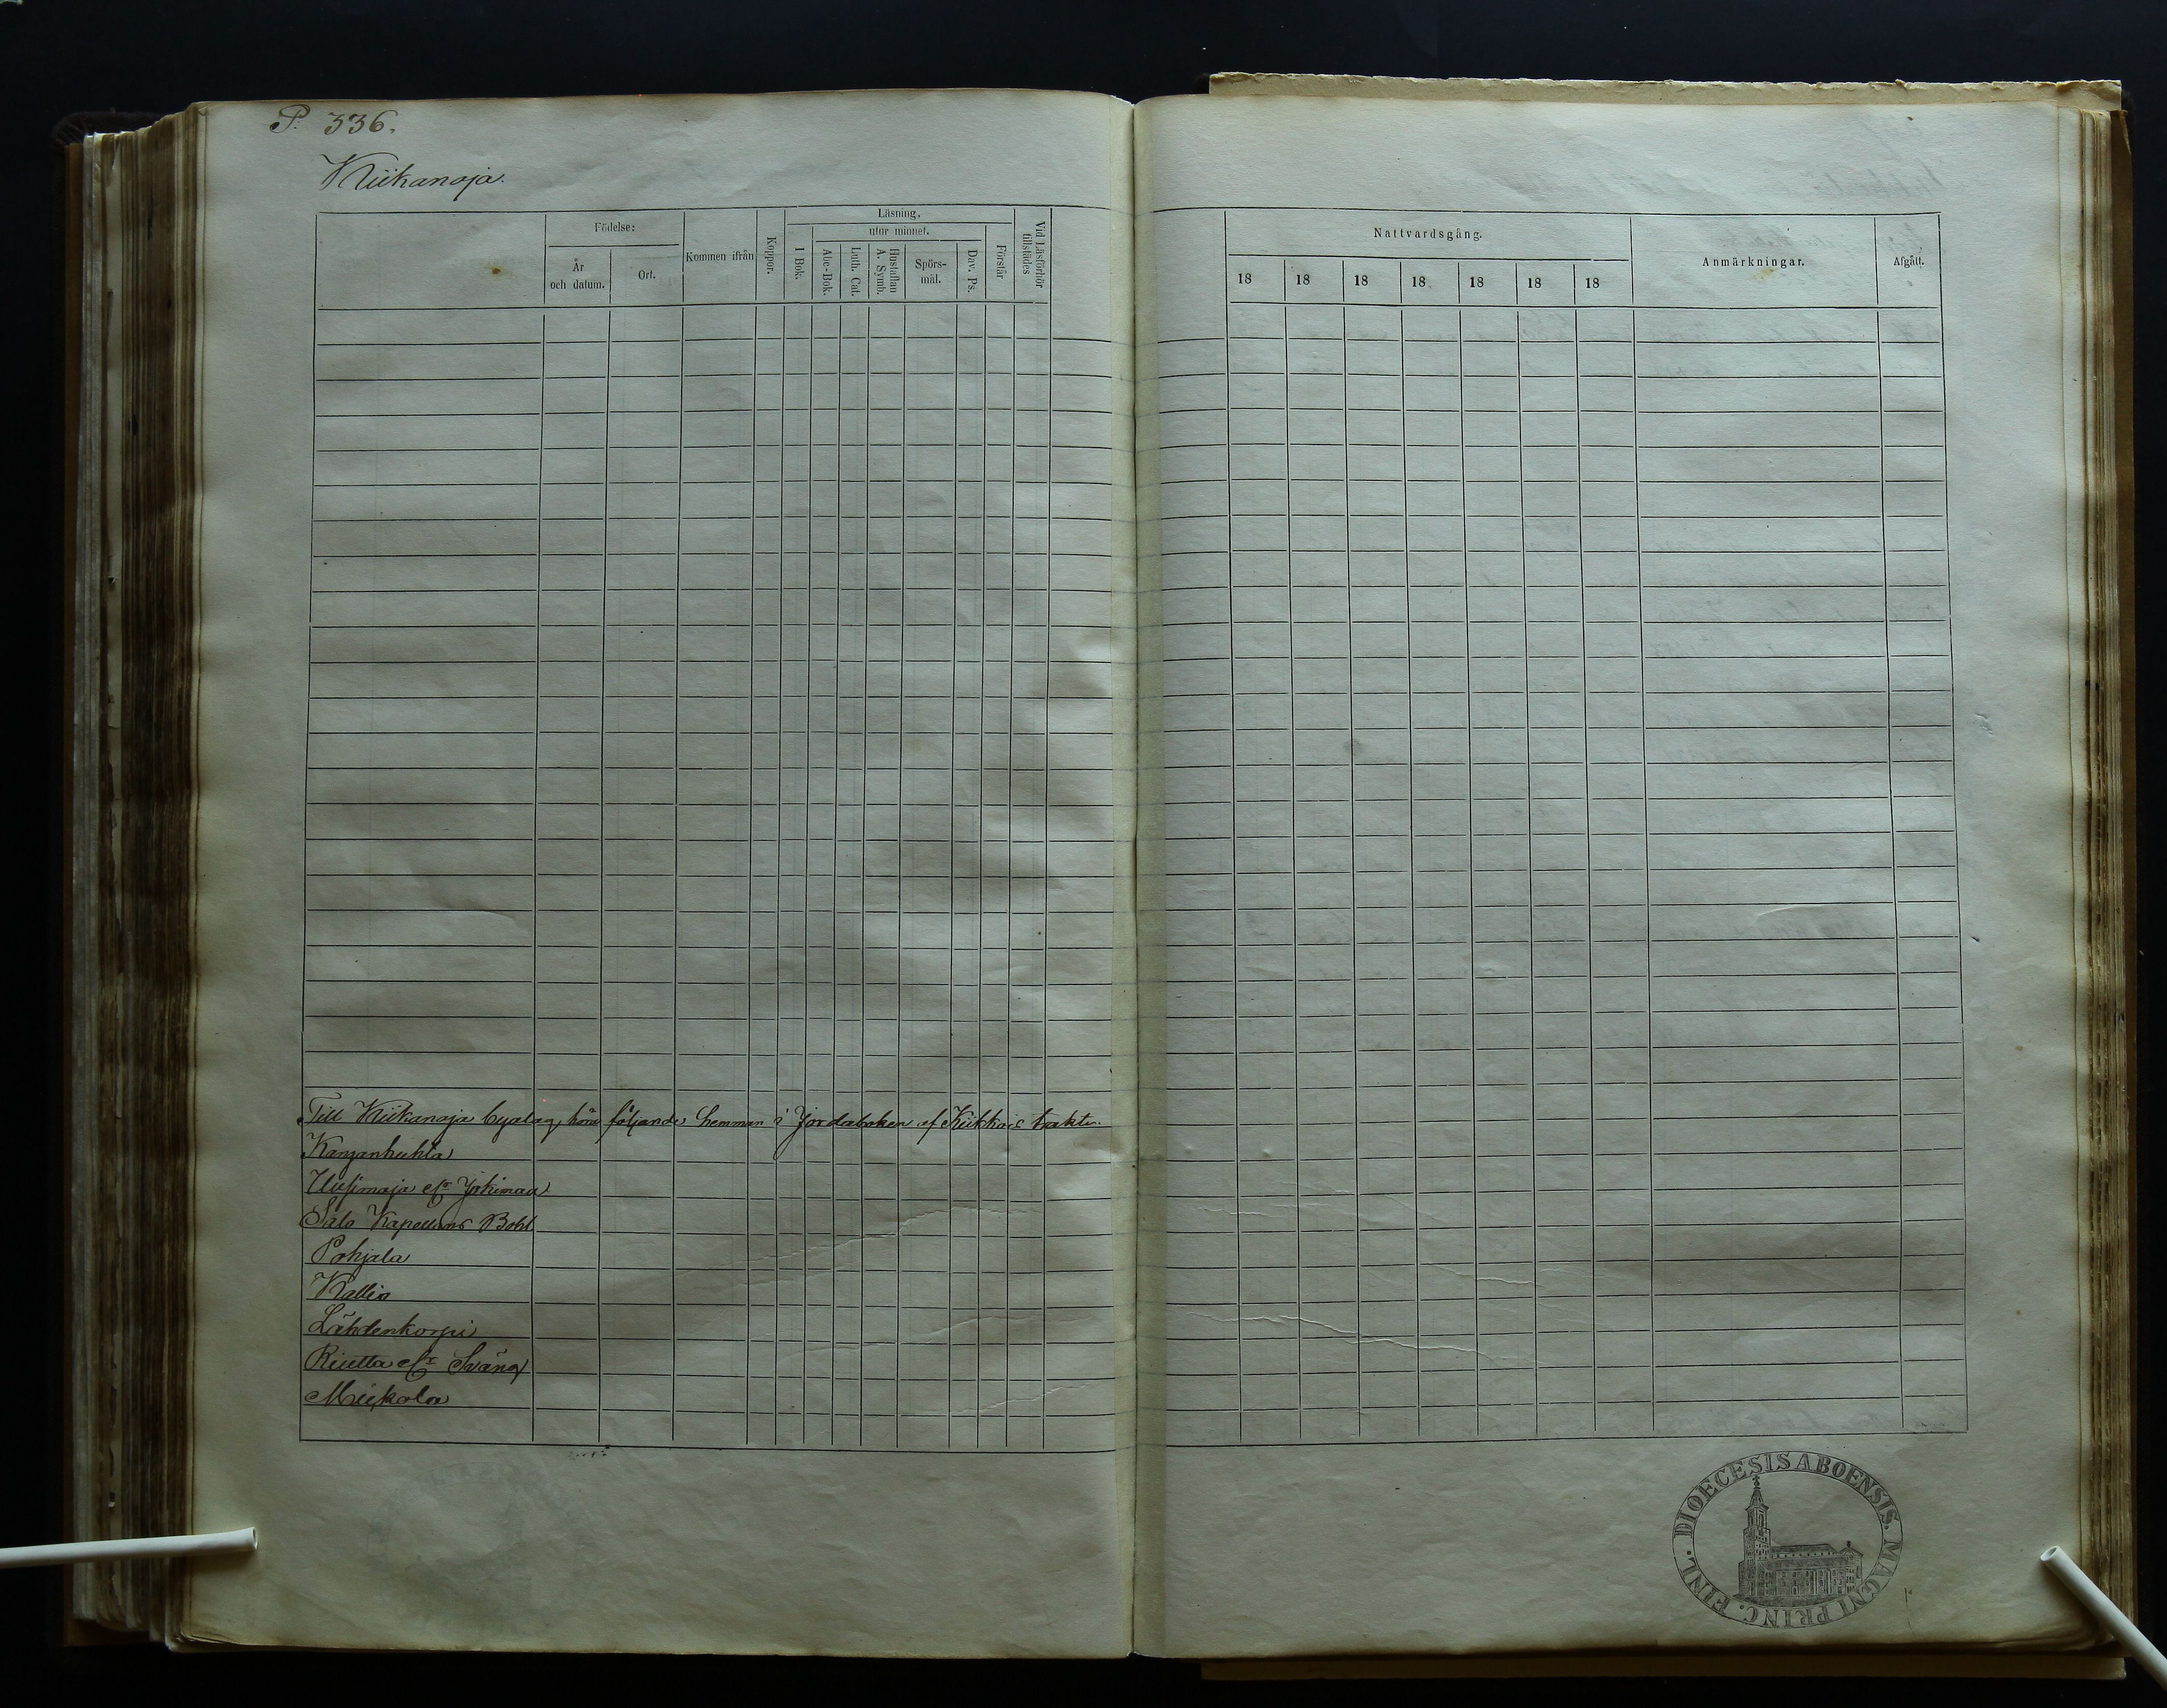 P. 336.
Kiikanoja.
Födelse:
År och datum.
Ort.
Kommen ifrån
Koppor.
Läsning.
utur minnet.
I Bok.
Abc-Bok.
Luth. Cat.
Hustaflan A. Symb.
Spörs-mål.
Dav. Ps.
Förstår
Vid Läsförhör tillstädes
Nattvardsgång.
18 18 18 18 18 18 18
Anmärkningar.
Afgått.
Till Kiikanoja byalag höra följande hemman i Jordaboken af Kiikkais trakten.
Kanganhuhta
Uusimaja
Salo Kapellans Bohl
Pohjala
Kallio
Lähdenkorpi
Riutta
Miikola
DIOECESIS ABOENSIS. MAGNI PRINC. FINL.